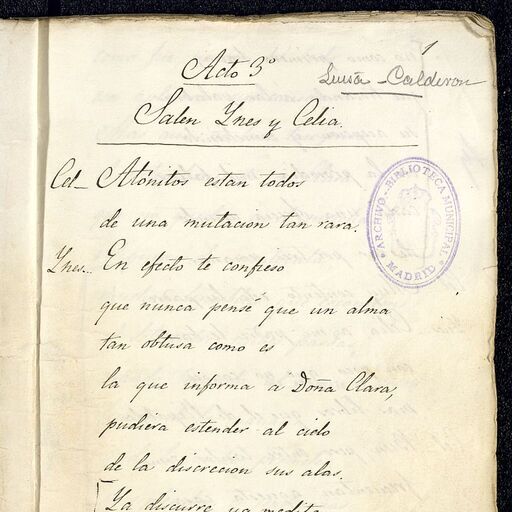 1
Acto 3º
Luisa Calderon
Salen Ynes y Celia.
Cel_ Atónitos estan todos
de una mutacion tan rara.
Ynes.. En efecto te confieso
que nunca pensé que un alma
tan obtusa como es
la que informa á Doña Clara,
pudiera estender al cielo
de la discrecion sus alas.
Ya discurre, ya medita
ARCHIVO-BIBLIOTECA MUNICIPAL
MADRID